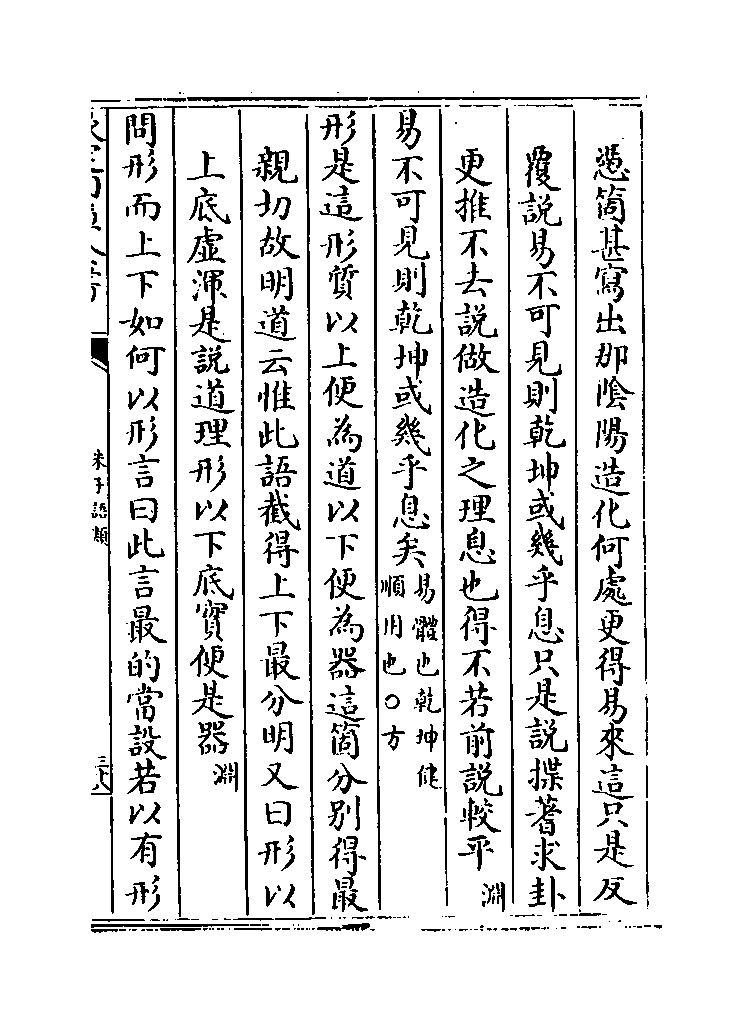 憑箇甚寫出那隂陽造化何處更得易來這只是反
覆説易不可見則乾坤或幾乎息只是説揲蓍求卦
更推不去説做造化之理息也得不若前説較平淵
易不可見則乾坤或幾乎息矣易體也乾坤健
順用也○方
形是這形質以上便為道以下便為器這箇分别得最
親切故明道云惟此語截得上下最分明又曰形以
上底虚渾是説道理形以下底實便是器淵
問形而上下如何以形言曰此言最的當設若以有形
朱子語類